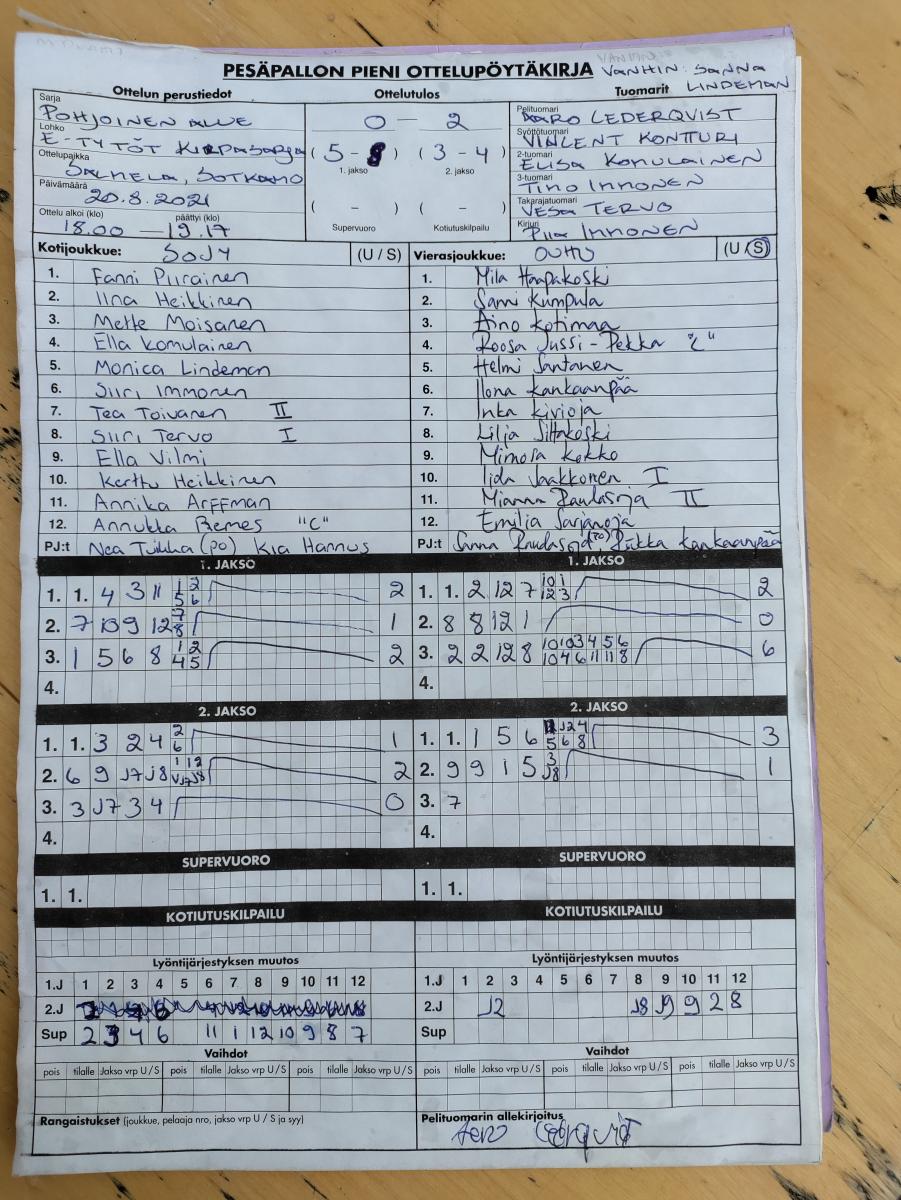 PESÄPALLON PIENI OTTELUPÖYTÄKIRJA VANHIN: SANNA LINDEMAN
Ottelun perustiedot Ottelutulos Tuomarit
Sarja POHJOINEN ALUE
Lohko E-TYTÖT KILPASARJA
Ottelupaikka SALMELA, SOTKAMO
Päivämäärä 20.8.2021
Ottelu alkoi (klo) päättyi (klo)
18.00 — 19.17
0 — 2
(5 - 8) (3 - 4)
1. jakso 2. jakso
( - ) ( - )
Supervuoro Kotiutuskilpailu
Pelituomari AARO LEDERQVIST
Syöttötuomari VINCENT KONTTURI
2-tuomari ELISA KOMULAINEN
3-tuomari TIMO IMMONEN
Takarajatuomari VESA TERVO
Kirjuri PIIA IMMONEN
Kotijoukkue: SOJY (U / S)
1. Fanni Piirainen
2. Iina Heikkinen
3. Mette Moisanen
4. Ella Komulainen
5. Monica Lindeman
6. Siiri Immonen
7. Tea Toivanen II
8. Siiri Tervo I
9. Ella Vilmi
10. Kerttu Heikkinen
11. Annika Arffman
12. Annukka Remes "C"
PJ:t Nea Tuikka (PO) Kia Hannus
Vierasjoukkue: OUHU (U / S)
1. Mila Haapakoski
2. Sanni Kumpula
3. Aino Kotimaa
4. Roosa Jussi-Pekka "C"
5. Helmi Santanen
6. Ilona Kankaanpää
7. Inka Kivioja
8. Lilja Siltakoski
9. Mimosa Kokko
10. Iida Jaakkonen I
11. Mianna Raudasoja II
12. Emilia Sarjanoja
PJ:t Sanna Raudasoja (PO) Riikka Kankaanpää
1. JAKSO
1. 1. 4 3 11 1 2 5 6 2
2. 7 10 9 12 7 8 1
3. 1 5 6 8 1 2 4 5 2
4.
1. JAKSO
1. 1. 2 12 7 10 1 12 3 2
2. 8 8 12 1 0
3. 2 2 12 8 10 10 3 4 5 6 10 4 6 11 11 8 6
4.
2. JAKSO
1. 1. 3 2 4 2 6 1
2. 6 9 J7 J8 1 12 J7 J8 2
3. 3 J7 3 4 0
4.
2. JAKSO
1. 1. 1 5 6 J2 4 5 6 8 3
2. 9 9 1 5 3 J8 1
3. 7
4.
SUPERVUORO
1. 1.
SUPERVUORO
1. 1.
KOTIUTUSKILPAILU
KOTIUTUSKILPAILU
Lyöntijärjestyksen muutos
1.J 1 2 3 4 5 6 7 8 9 10 11 12
2.J
Sup 2 3 4 6 11 1 12 10 9 8 7
Lyöntijärjestyksen muutos
1.J 1 2 3 4 5 6 7 8 9 10 11 12
2.J J2 J8 J9 9 2 8
Sup
Vaihdot
pois tilalle Jakso vrp U / S pois tilalle Jakso vrp U / S pois tilalle Jakso vrp U / S
Vaihdot
pois tilalle Jakso vrp U / S pois tilalle Jakso vrp U / S pois tilalle Jakso vrp U / S
Rangaistukset (joukkue, pelaaja nro, jakso vrp U / S ja syy)
Pelituomarin allekirjoitus